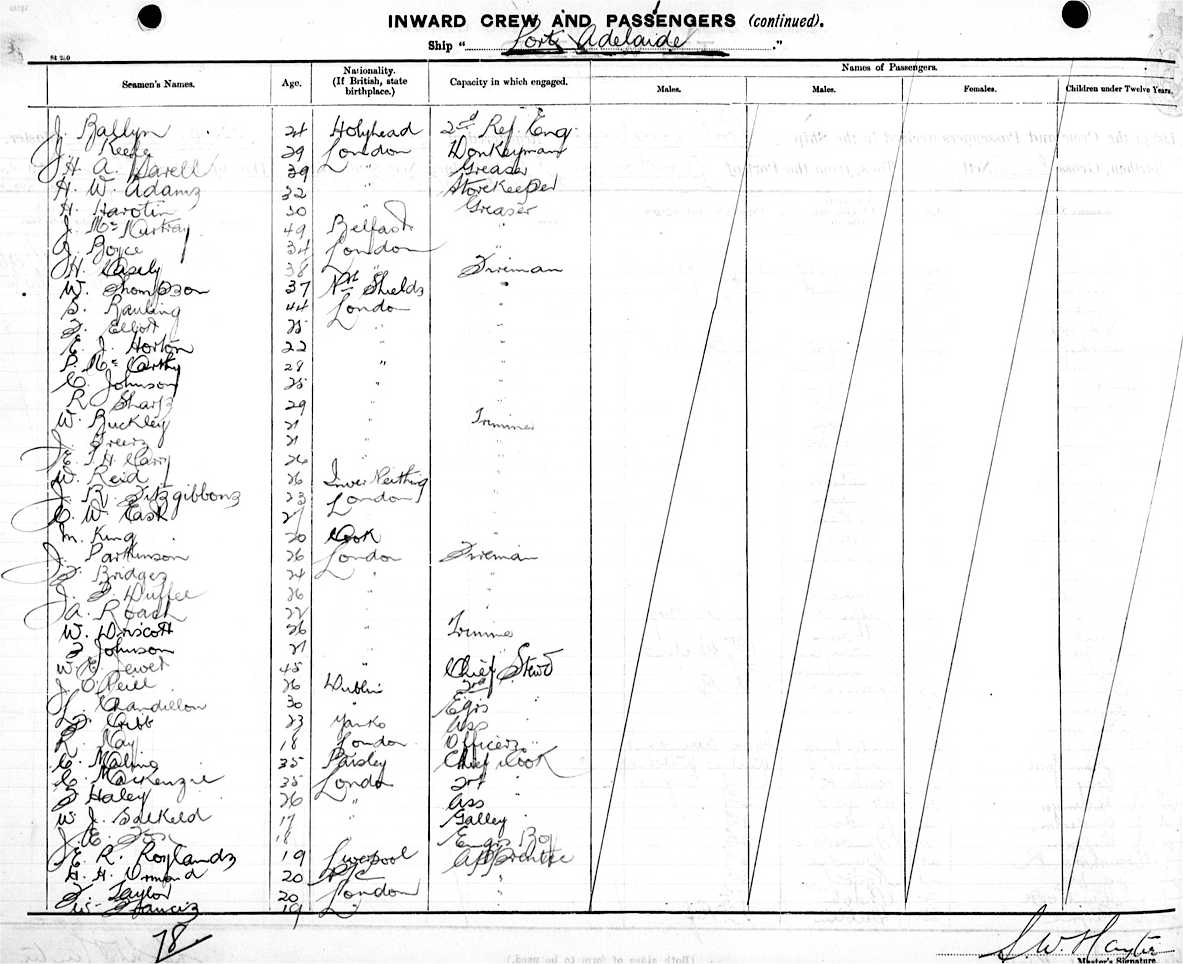 INWARD CREW AND PASSENGERS (continued).
Ship "Port Adelaide"
Seamen's Names. Age. Nationality. (If British, state birthplace.) Capacity in which engaged. Names of Passengers.
Males. Males. Females. Children under Twelve Years.
J. Ballyn 24 Holyhead 2nd Ref. Eng
J. Keefe 29 London Donkeyman
H. A. Savell 39 " Greaser
H. W. Adams 32 " Storekeeper
H. 30 " Greaser
J. Mc Murtray 49 Belfast "
J. Boyce 34 London "
H. Casely 38 " Fireman
W. Thompson 37 Nth Shields "
S. Rauling 44 London "
F. Elliott 25 " "
E. J. Horton 22 " "
P. Mc Carthy 28 " "
C. Johnson 25 " "
R. Sharp 29 " "
W. Buckley 21 " Trimmer
J. 21 " "
E. H. Carry 26 " "
W. Reid 26 "
J. R. Fitzgibbons 23 London "
C. W. East 21 " "
M. King 20 Cork "
J. Parkinson 26 London Fireman
F. Bridges 24 " "
J. F. Duffee 26 " "
A. Roach 22 " "
W. Driscott 26 " Trimmer
F. Johnson 21 " "
W. E. Jewet 45 " Chief Stewd
J. O'Neill 26 Dublin 2nd "
J. Chandillon 30 " Egrs "
F. Cribb 23 Ass "
R. Kay 18 London Officers "
C. Maling 35 Paisley Chief Cook
C. Mackenzie 35 London 2nd "
F. Haley 26 " Ass "
W. J. Salkeld 17 " Galley
J. E. Fox 18 " Engrs Boy
E. R. Roylands 19 Liverpool Apprentice
H. H. Ormond 20 "
F. Taylor 20 London "
W. Francis 19 " "
78
S. W. Hayter
Master's Signature.